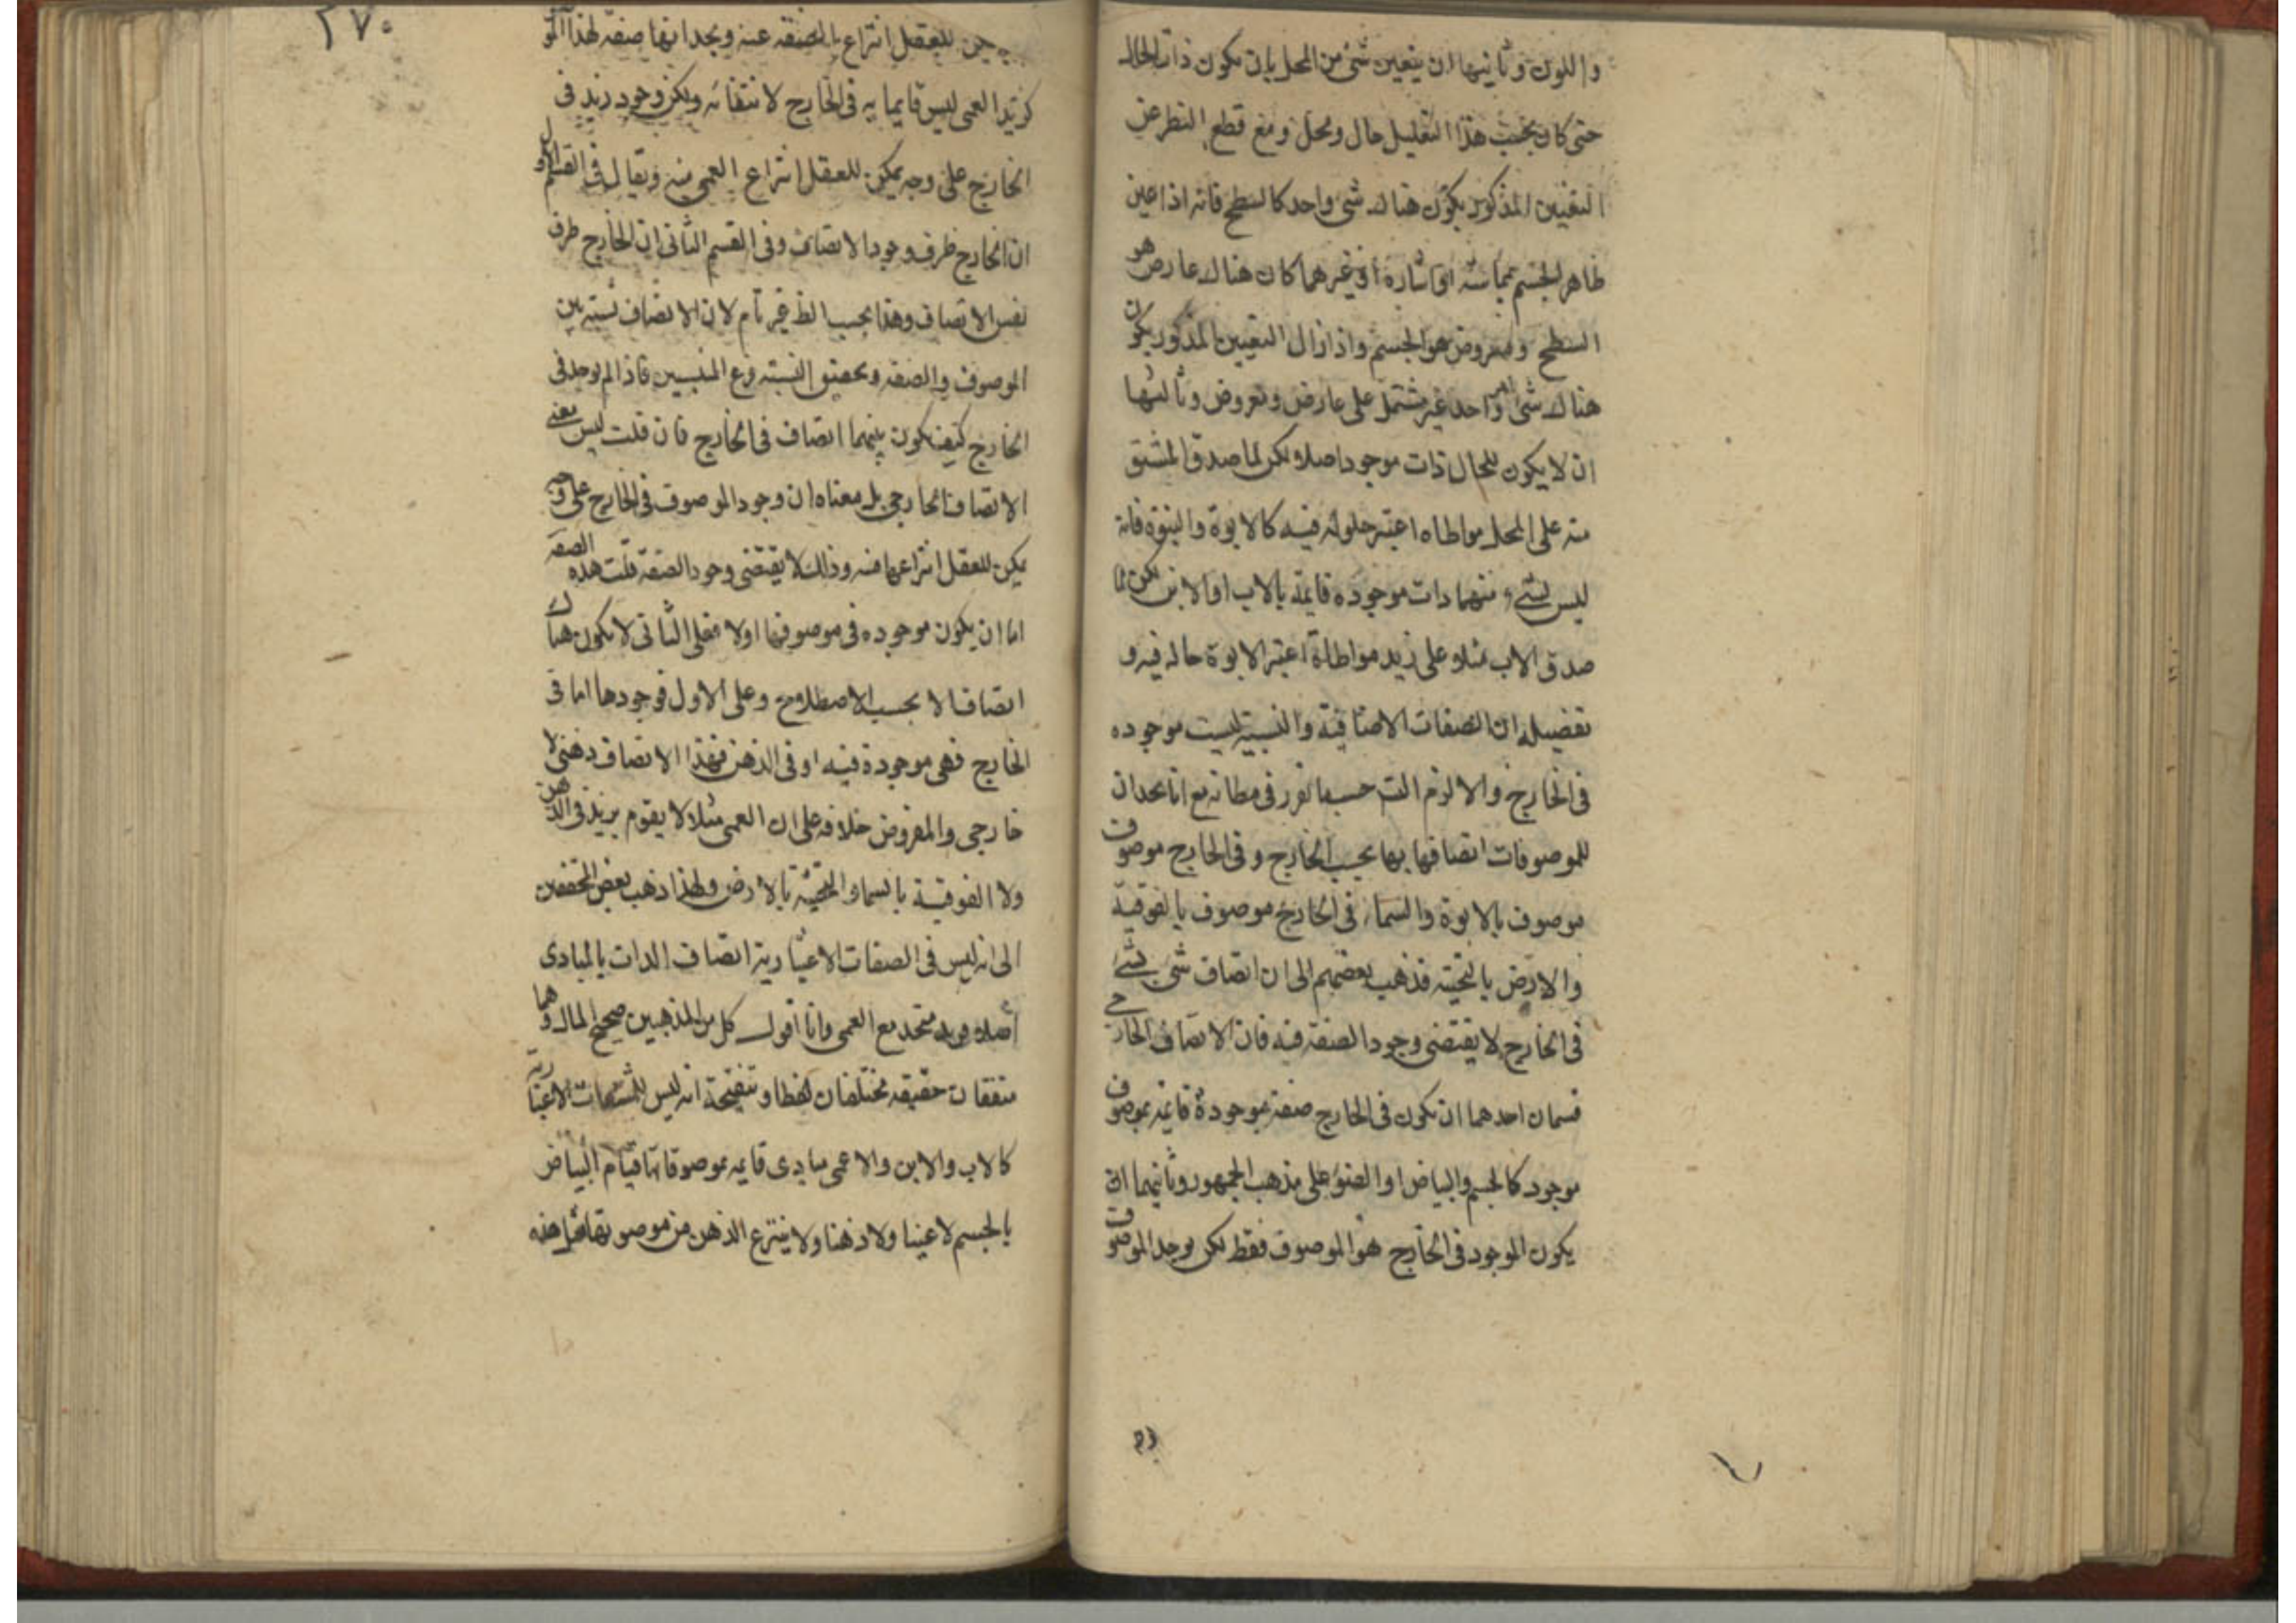 واللون وثانيها ان يتعين شئ من المحل بان يكون ذات الحال
حتى كان بحسب هذا التحليل حال ومحل ومع قطع النظر عن
التعيين المذكور يكون هناك شئ واحد كالسطح فانه اذا عين
ظاهر الجسم بمماسته او اشارة او غيرهما كان هناك عارض هو
السطح ومعروض هو الجسم واذا زال التعيين المذكور يكون
هناك شئ واحد غير مشتمل على عارض ومعروض وثالثها
ان لا يكون للحال ذات موجود اصلا ولكن لما صدق المشتق
منه على المحل مواطاه اعتبر حلوله فيه كالابوة والبنوة فانه
ليس لشئ منهما ذات موجوده قايمة بالاب او الابن لكن لما
صدق الاب مثلا على زيد مواطاة اعتبر الابوة حاله فيه و
تفصيله ان الصفات الاضافية والنسبية ليست موجوده
فى الخارج والا لزم التس حسبما تقرر فى مظانه مع انا نجد ان
للموصوفات اتصافها بها بحسب الخارج وفى الخارج موصوف
موصوف بالابوة والسماء فى الخارج موصوف بالفوقية
والارض بالتحتية فذهب بعضهم الى ان اتصاف شئ بشئ
فى الخارج لا يقتضى وجود الصفة فيه فان الاتصاف الخارجى
قسمان احدهما ان تكون فى الخارج صفة موجودة قايمة بموصوف
موجود كالجسم والبياض او الضوء على مذهب الجمهور وثانيهما ان
يكون الموجود فى الخارج هو الموصوف فقط لكن يوجد الموصوف
٢٧٠
للعقل انتزاع الصفة عنه ويجد انها صفة لهذا
كزيد العمى ليس قايما به فى الخارج لانتفائه ولكن وجود زيد فى
الخارج على وجه يمكن للعقل انتزاع العمى منه ويقال فى القسم الاول
ان الخارج ظرف وجود الاتصاف وفى القسم الثانى ان الخارج ظرف
نفس الاتصاف وهذا بحسب الظ غير تام لان الاتصاف نسبة بين
الموصوف والصفة وتحقيق النسبة فرع المنتسبين فاذا لم يوجد فى
الخارج كيف يكون بينهما اتصاف فى الخارج فان قلت ليس معنى
الاتصاف الخارجى بل معناه ان وجود الموصوف فى الخارج على وجه
يمكن للعقل انتزاعها منه وذلك لا يقتضى وجود الصفة قلت هذه الصفة
اما ان يكون موجوده فى موصوفها اولا فعلى الثانى لا يكون هناك
اتصاف الا بحسب الاصطلاح وعلى الاول فوجودها اما فى
الخارج فهى موجودة فيه او فى الذهن فهذا الاتصاف ذهنى لا
خارجى والمفروض خلافه على ان العمى مثلا لا يقوم بزيد فى الذهن
ولا الفوقية بالسماء والتحتية بالارض ولهذا ذهب بعض المحققين
الى انه ليس فى الصفات الاعتبارية اتصاف الذات بالمبادى
اصلا متحد مع العمى وانا اقول كل من المذهبين صحيح المال وهما
متفقان حقيقه مختلفان لفظا وتنقيحه انه ليس للمشتقات الاعتبارية
كالاب والابن والاعمى مبادى قايمه بموصوفاتها قيام البياض
بالجسم لا عينا ولا ذهنا ولا ينتزع الذهن من موصوفها هذه